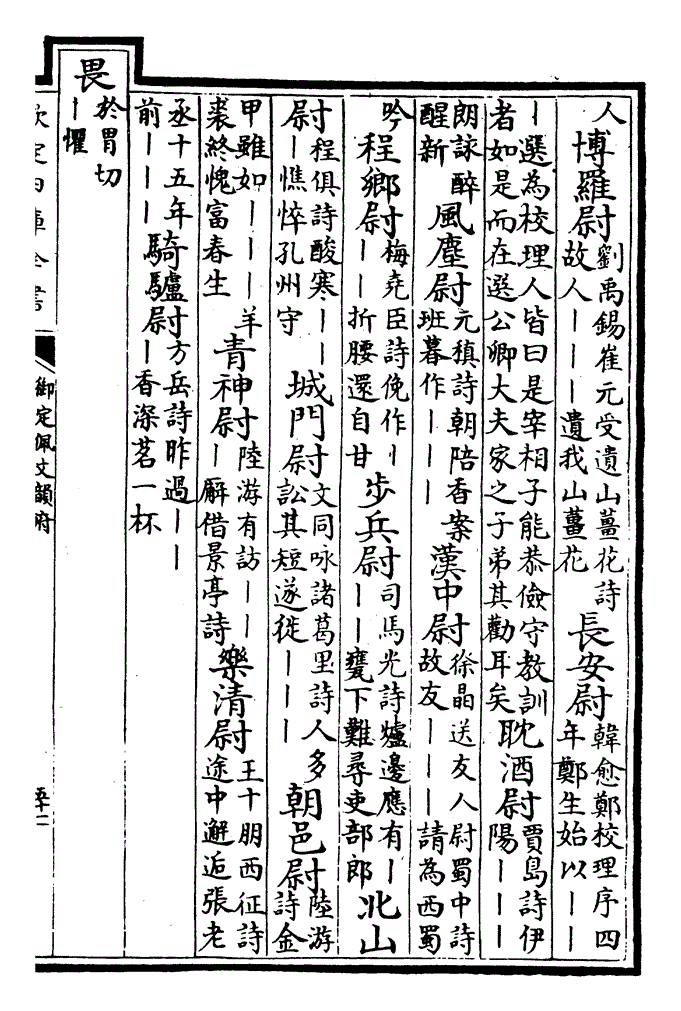 人博羅尉劉禹錫崔元受遺山薑花詩故人｜｜｜遺我山薑花長安尉韓愈鄭校理序四年鄭生始以｜｜
｜選為校理人皆曰是宰相子能恭儉守教訓者如是而在選公卿大夫家之子弟其勸耳矣耽酒尉賈島詩伊陽｜｜｜
朗詠醉醒新風塵尉元稹詩朝陪香案班暮作｜｜｜漢中尉徐晶送友人尉蜀中詩故友｜｜｜請為西蜀
吟程鄉尉梅堯臣詩俛作｜｜｜折腰還自甘步兵尉司馬光詩爐邊應有｜｜｜甕下難尋吏部郎北山
尉程俱詩酸寒｜｜｜憔悴孔州守城門尉文同咏諸葛里詩人多訟其短遂徙｜｜｜朝邑尉陸游詩金
甲雖如｜｜｜羊裘終愧富春生青神尉陸游有訪｜｜｜廨借景亭詩樂清尉王十朋西征詩途中邂逅張老
丞十五年前｜｜｜騎驢尉方岳詩昨過｜｜｜香深茗一杯
畏於胃切｜懼
欽定四庫全書
御定佩文韻府